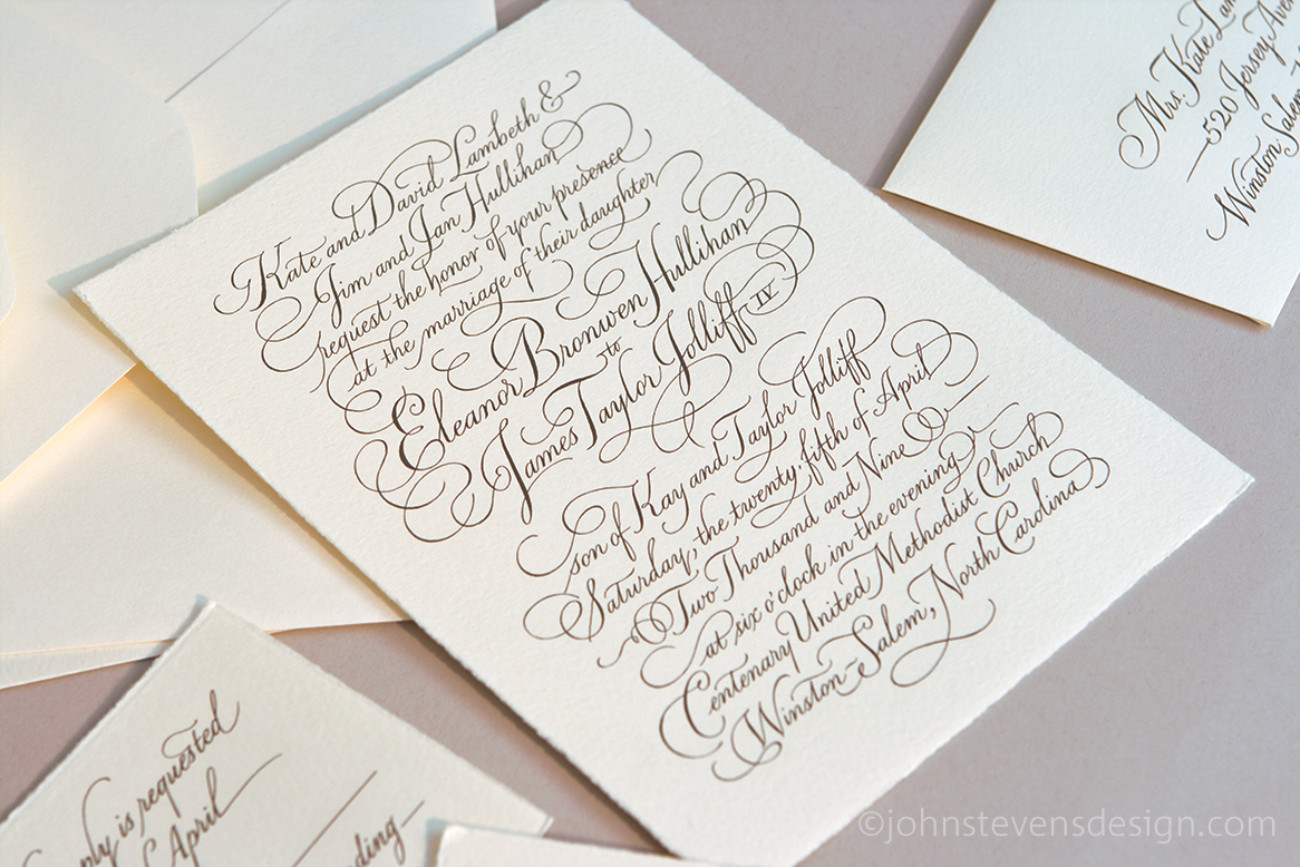 Kate and David Lambeth &
Jim and Jan Hullihan
request the honor of your presence
at the marriage of their daughter
Eleanor Bronwen Hullihan
to
James Taylor Jolliff IV
son of Kay and Taylor Jolliff
Saturday, the twenty-fifth of April
Two Thousand and Nine
at six o'clock in the evening
Centenary United Methodist Church
Winston-Salem, North Carolina
Mrs. Kate Lam
520 Jersey Aven
Winston Salem
is requested
April
©johnstevensdesign.com